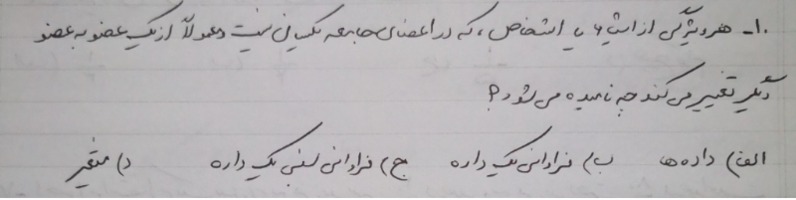 ۱۰- هر ویژگی از اشیاء یا اشخاص، که در اعضای جامعه یکسان نیست و معمولاً از یک عضو به عضو
دیگر تغییر می کند چه نامیده می شود؟
الف) داده ها    ب) فراوانی یک داده    ج) فراوانی نسبی یک داده    د) متغیر